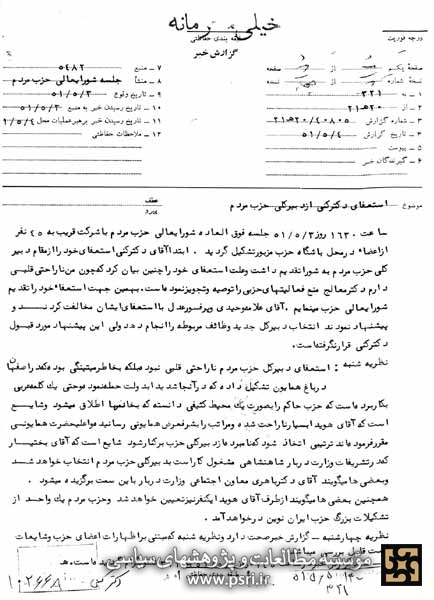 خیلی محرمانه
طبقه بندی حفاظتی
گزارش خبر
درجه فوریت
صفحه یکم از صفحه
نسخه شماره از نسخه
۱ – به ۳۲۱
۲ – از ۲۰ه۲۱
۳ – شماره گزارش ۲۰/۴۰۸۰۵ه۲۱
۴ – تاریخ گزارش ۵۱/۵/۴
۵ – پیوست
۶ – گیرندگان خبر
۷ – منبع ۵۴۸۲
۸ – منشأ جلسه شورایعالی حزب مردم
۹ – تاریخ وقوع ۵۱/۵/۳
۱۰ – تاریخ رسیدن خبر به منبع ۵۱/۵/۳
۱۱ – تاریخ رسیدن خبر برهبر عملیات محل ۵۱/۵/۴
۱۲ – ملاحظات حفاظتی
موضوع استعفای دکتر کنی از دبیرکلی حزب مردم
ساعت ۱۶۳۰ روز ۵۱/۵/۳ جلسه فوق العاده شورایعالی حزب مردم باشرکت قریب به ۴۵ نفر
از اعضاء در محل باشگاه حزب مزبور تشکیل گردید. ابتدا آقای دکتر کنی استعفای خود را از مقام دبیر
کلی حزب مردم به شورا تقدیم داشت و علت استعفای خود را چنین بیان کرد که چون من ناراحتی قلبی
دارم دکتر معالج منع فعالیتهای حزبی را توصیه و تجویز نموده است. بهمین جهت استعفاء خود را تقدیم
شورایعالی حزب مینمایم. آقای علامه وحیدی و پرفسور عدل با استعفای ایشان مخالفت کردند و
پیشنهاد نمودند انتخاب دبیرکل جدید وظائف مربوطه را انجام دهد ولی این پیشنهاد مورد قبول
دکتر کنی قرار نگرفته است.
نظریه شنبه : استعفای دبیرکل حزب مردم ناراحتی قلبی نبود بلکه بخاطر میتینگی بود که در اصفهان
در باغ همایون تشکیل داده که در آنجا شدیدا بدولت حمله نمود و حتی یک کلمه عربی
بکار برده است که حزب حاکم را بصورت یک محیط کثیفی دانسته که بخانمها اطلاق میشود و شایع
است که آقای هویدا بسیار ناراحت شده و مراتب را بشرفعرض همایونی رسانیده و اعلیحضرت همایونی
مقرر فرموده اند ترتیبی اتخاذ شود که نامبرده از دبیرکلی حزب برکنار شود شایع است که آقای بختیار
که در تشریفات وزارت دربار شاهنشاهی مشغول کار است به دبیرکلی حزب مردم انتخاب خواهد شد
و بعضی ها میگویند آقای دکتر باهری معاون اجتماعی وزارت دربار باین سمت برگزیده میشود.
همچنین بعضی ها میگویند از طرف آقای هویدا یکنفر نیز تعیین خواهد شد و حزب مردم یک واحد از
تشکیلات بزرگ حزب ایران نوین در خواهد آمد.
نظریه چهارشنبه – گزارش خبر صحت دارد و نظریه شنبه که مبتنی بر اظهارات اعضای حزب و شایعات
است قابل بررسی میباشد
موسسه مطالعات و پژوهشهای سیاسی
www.psri.ir
۱۰۲۶۶۸
دکتر کنی
۳۲۱